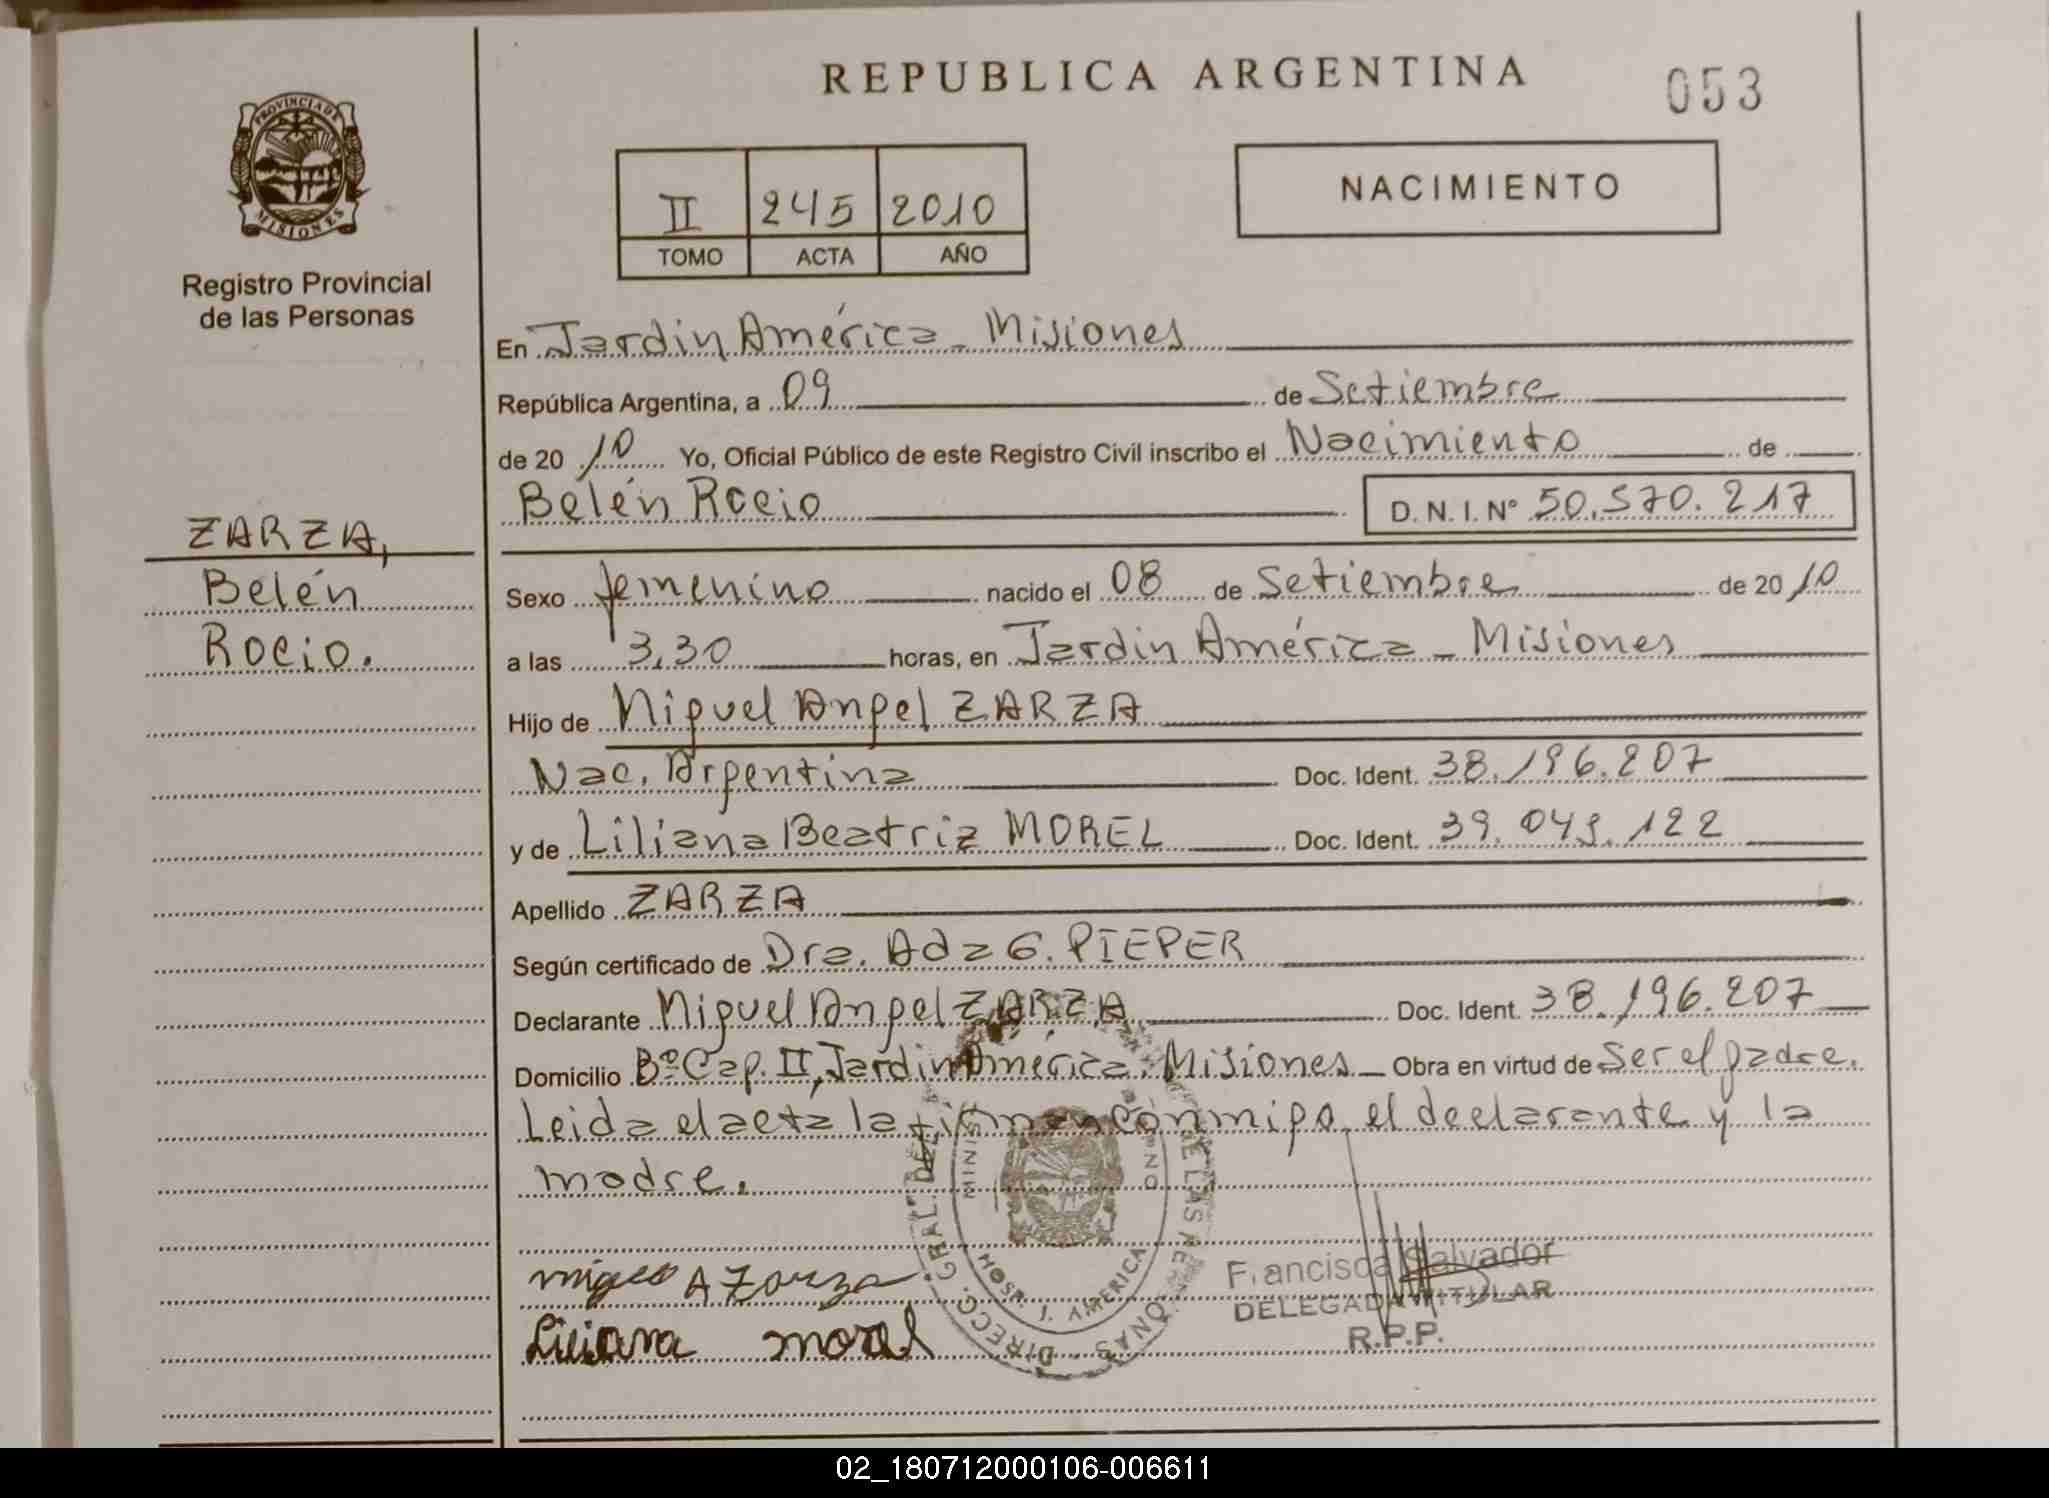 REPUBLICA ARGENTINA
053
PROVINCIA DE MISIONES
Registro Provincial
de las Personas
II 245 2010
TOMO ACTA AÑO
NACIMIENTO
En Jardin América - Misiones
República Argentina, a 09 de Setiembre
de 2010 Yo, Oficial Público de este Registro Civil inscribo el Nacimiento de
Belén Rocio D.N.I. Nº 50.570.217
ZARZA,
Belén
Rocio.
Sexo femenino nacido el 08 de Setiembre de 2010
a las 3,30 horas, en Jardin América - Misiones
Hijo de Miguel Angel ZARZA
Nac. Argentina Doc. Ident. 38.196.207
y de Liliana Beatriz MOREL Doc. Ident. 39.043.122
Apellido ZARZA
Según certificado de Dra. Ada G. PIEPER
Declarante Miguel Angel ZARZA Doc. Ident. 38.196.207
Domicilio Bº Cap. II, Jardin América. Misiones - Obra en virtud de Ser el padre.
Leida el acta la firman conmigo, el declarante y la
madre.
Miguel A Zarza
Liliana morel
DIRECC. GRAL. DE LAS PERSONAS
HOSP. J. AMERICA
Francisca Salvador
DELEGADA TITULAR
R.P.P.
02_180712000106-006611